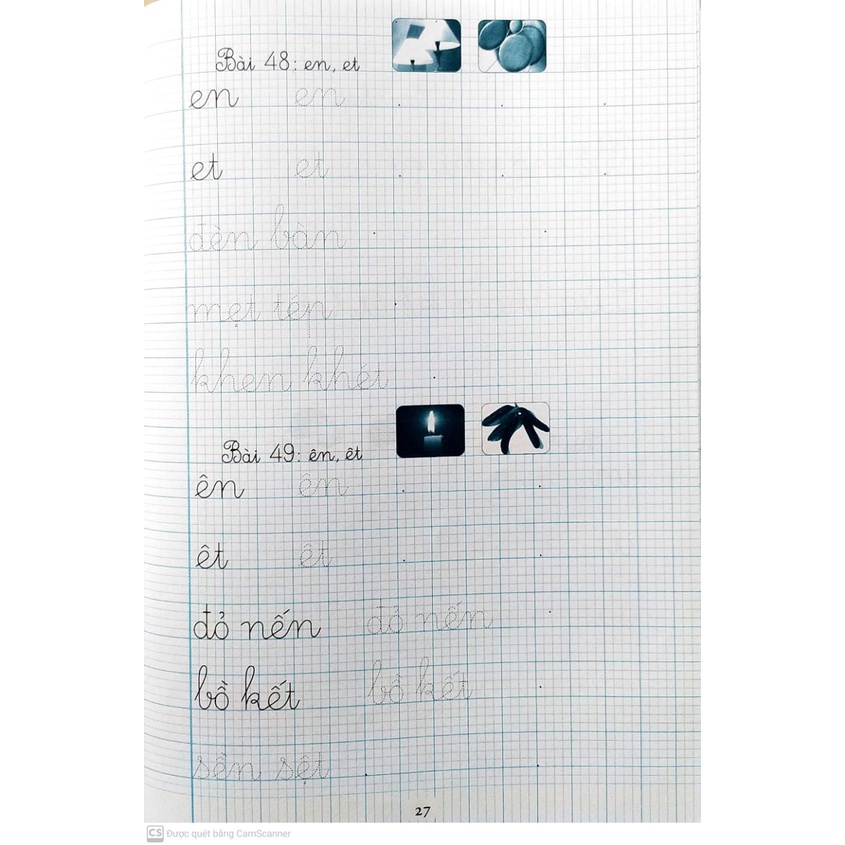 Bài 48: en, et
en en
et et
đèn bàn
mẹt tép
khen khét
Bài 49: ên, êt
ên ên
êt êt
đỏ nến đỏ nến
bồ kết bồ kết
sền sệt
27
CS Được quét bằng CamScanner